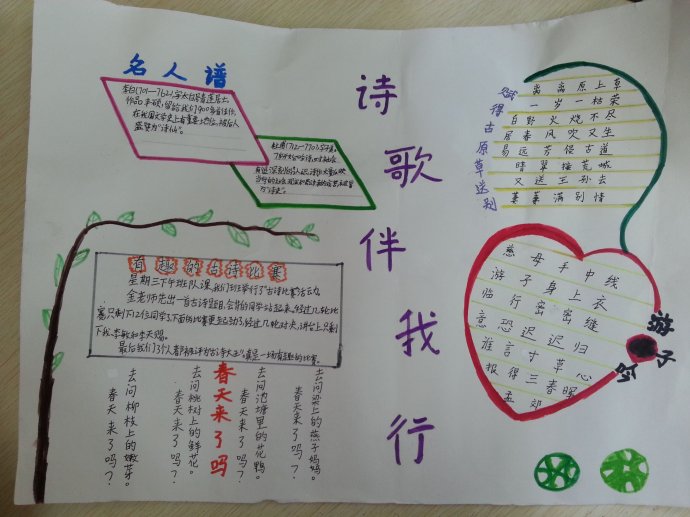 名人谱
李白(701-762),字太白,号青莲居士,
作品丰硕,留给我们900多首诗作,
在我国文学史上有重要地位,被后人
盛赞为“诗仙”。
杜甫(712-770),字子美,
诗歌伴我行
赋得古原草送别
离离原上草
一岁一枯荣
白野火烧不尽
居春风吹又生
易远芳侵古道
晴翠接荒城
又送王孙去
萋萋满别情
游子吟
慈母手中线
游子身上衣
临行密密缝
意恐迟迟归
谁言寸草心
报得三春晖
孟郊
有趣的古诗比赛
星期三下午班队课,我们班举行了“古诗比赛”活动。
金老师先出一首古诗题目,会背的同学站起来,经过几轮比
赛,只剩下12位同学了,下面的比赛更生动了,经过几轮对决,讲台上只剩
下我、李敏和李天赐。
春天来了吗
去问梁上的燕子妈妈。
春天来了吗?
去问池塘里的花鸭。
春天来了吗?
去问桃树上的鲜花。
春天来了吗?
去问柳枝上的嫩芽。
春天来了吗?